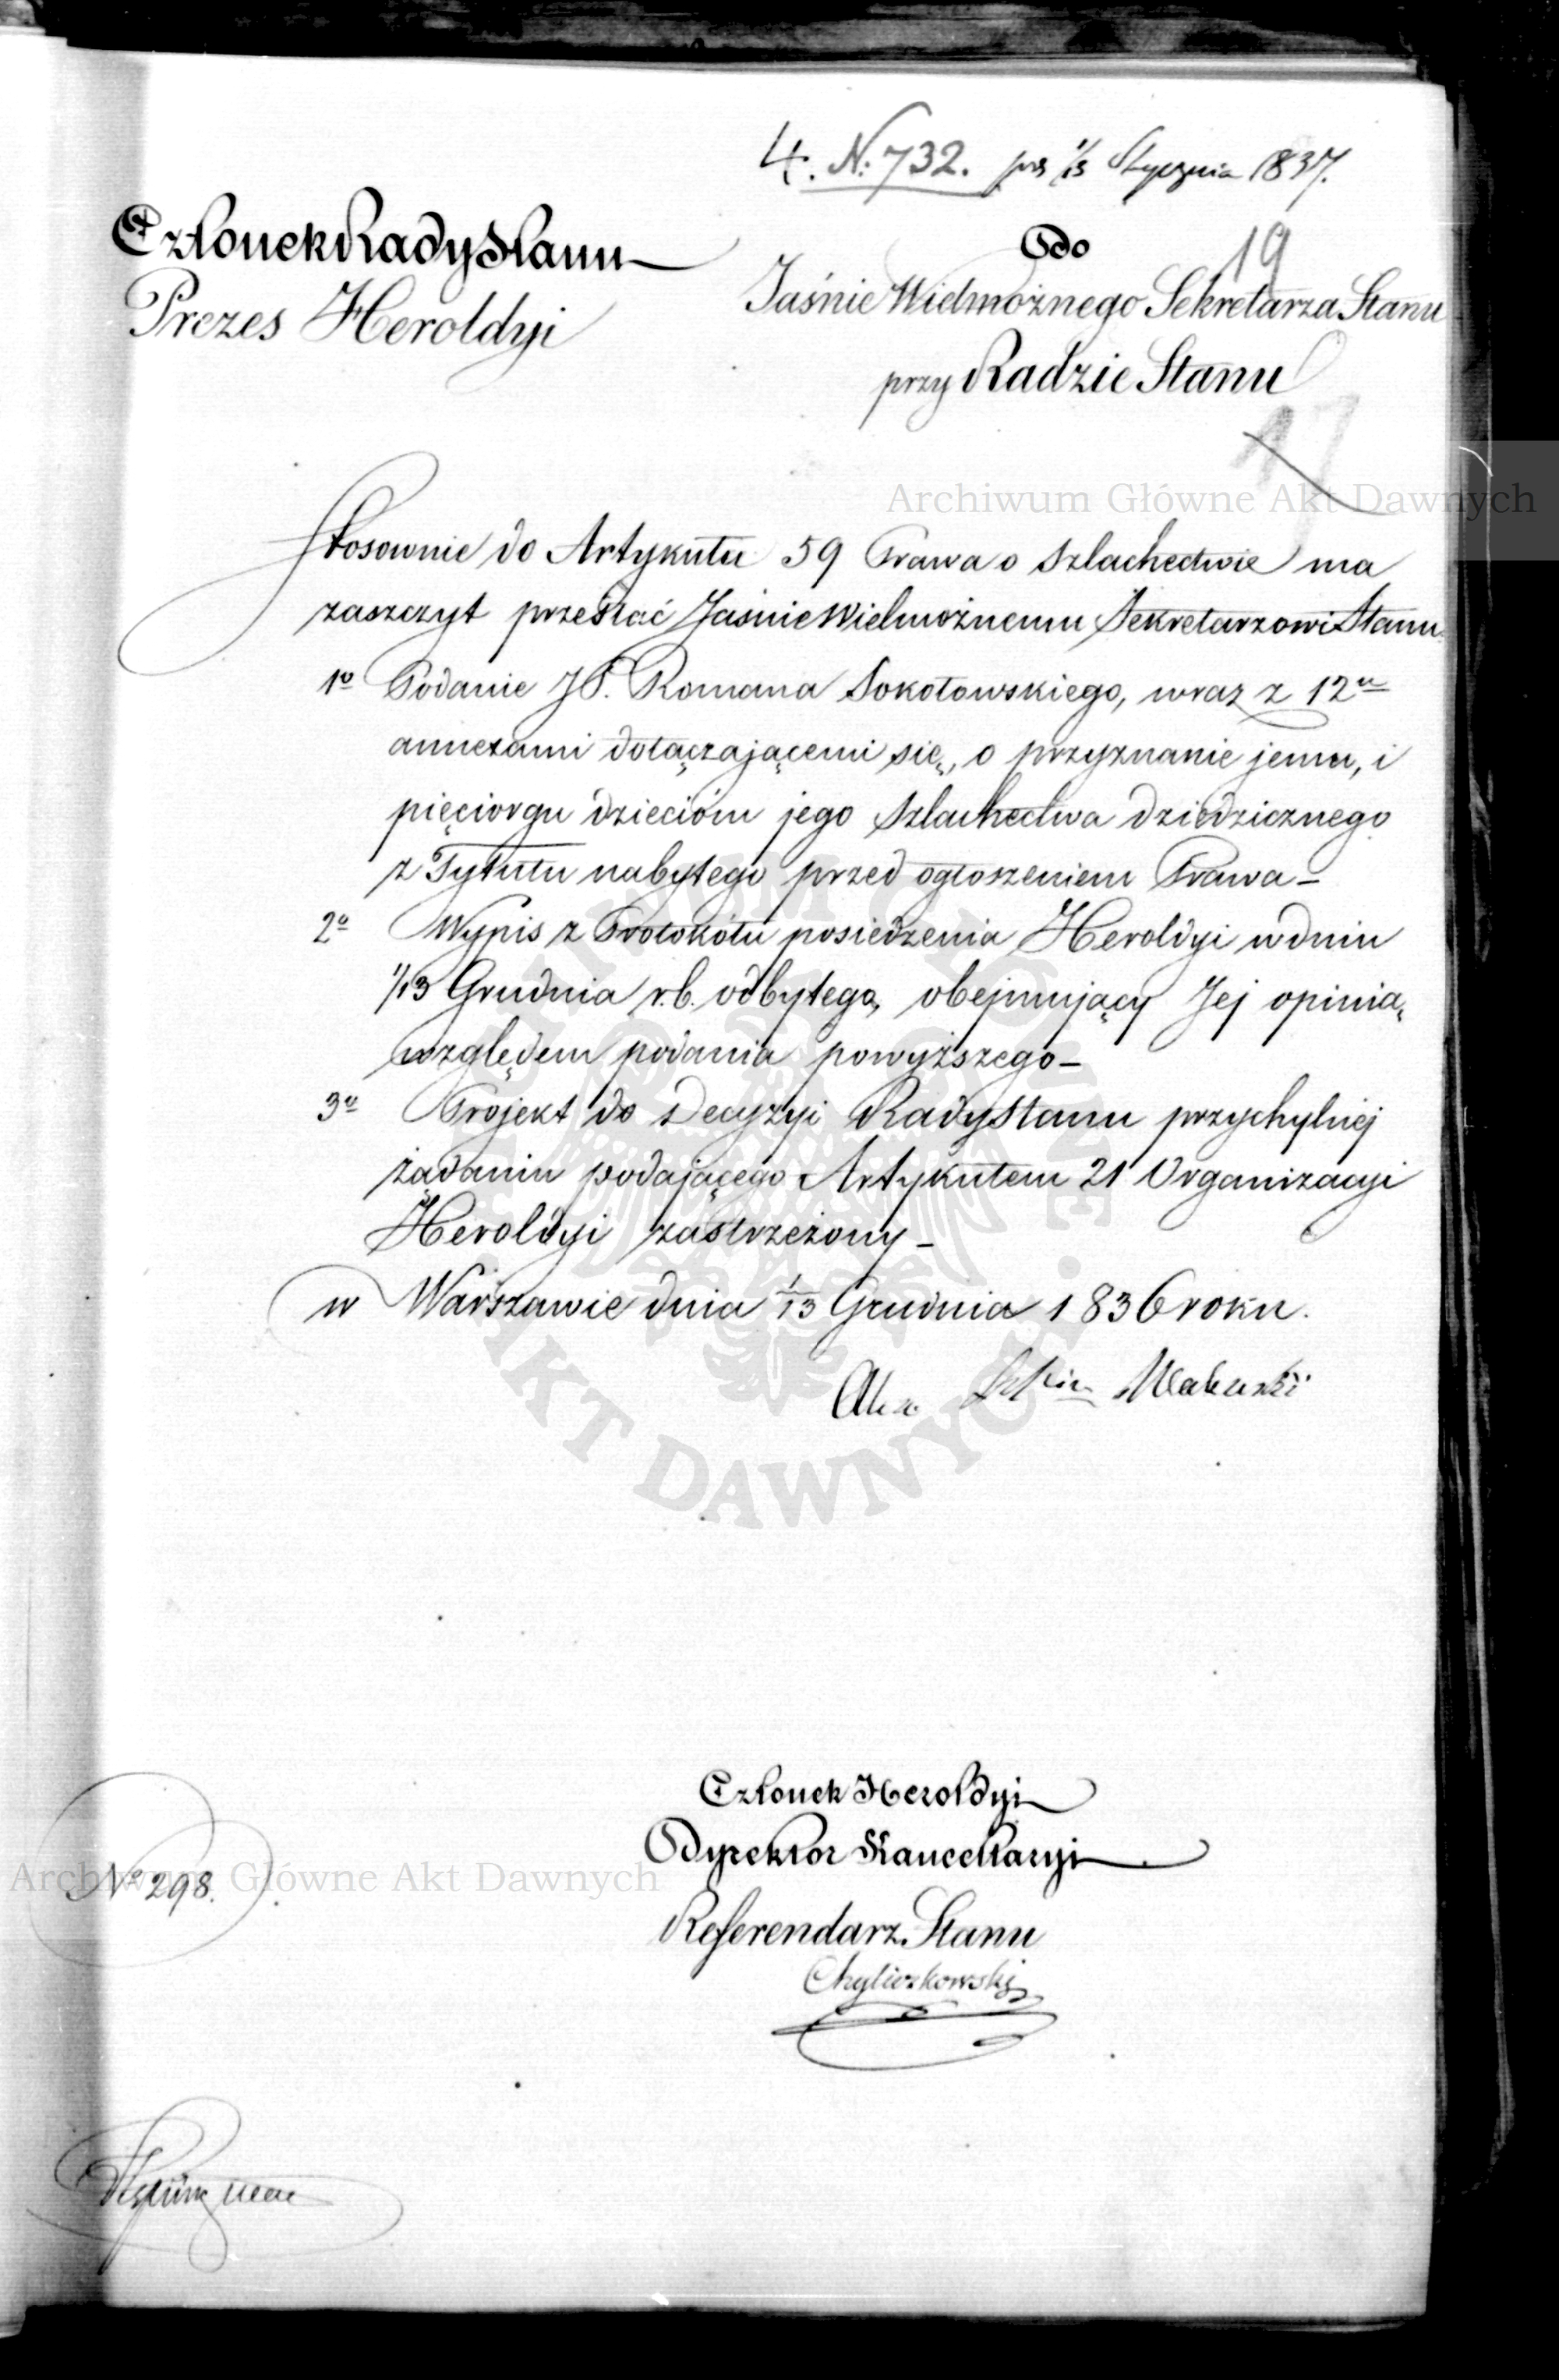 4. N: 732. prs 1/13 Stycznia 1837.
Członek Rady Stanu
Prezes Heroldyi
Do
19
Jaśnie Wielmożnego Sekretarza Stanu
przy Radzie Stanu
17
Archiwum Główne Akt Dawnych
Stosownie do Artykułu 59 Prawa o Szlachectwie ma
zaszczyt przesłać Jaśnie Wielmożnemu Sekretarzowi Stanu
1o Podanie JP. Romana Sokołowskiego, wraz z 12u
annexami dołączającemi się, o przyznanie jemu, i
pięciorgu dzieciom jego Szlachectwa dziedzicznego
z Tytułu nabytego przed ogłoszeniem Prawa –
2o Wypis z Protokółu posiedzenia Heroldyi w dniu
1/13 Grudnia r.b. odbytego, obejmujący Jej opinią,
względem podania powyższego –
3o Projekt do Decyzyi Rady Stanu przychylnej
żądaniu podającego Artykułem 21 Organizacyi
Heroldyi zastrzeżony –
w Warszawie dnia 1/13 Grudnia 1836 roku.
Członek Heroldyi
Dyrektor Kancellaryi
Archiwum Główne Akt Dawnych
No 298.
Referendarz Stanu
Chyliczkowski